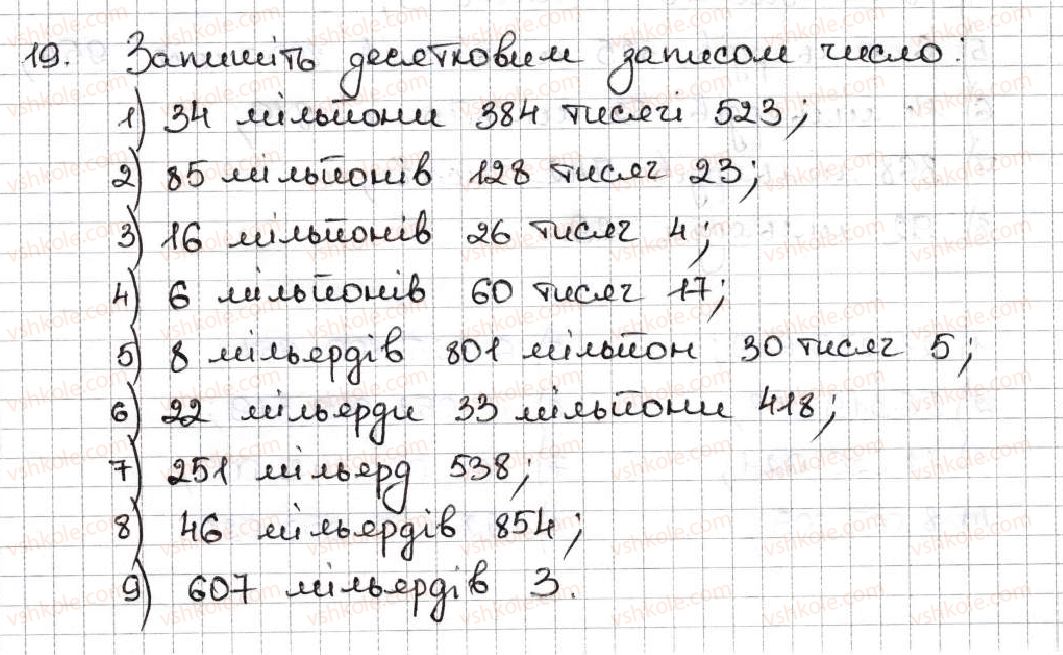 19. Запишіть десятковим записом число:
1) 34 мільйони 384 тисячі 523;
2) 85 мільйонів 128 тисяч 23;
3) 16 мільйонів 26 тисяч 4;
4) 6 мільйонів 60 тисяч 17;
5) 8 мільярдів 801 мільйон 30 тисяч 5;
6) 22 мільярди 33 мільйони 418;
7) 251 мільярд 538;
8) 46 мільярдів 854;
9) 607 мільярдів 3.